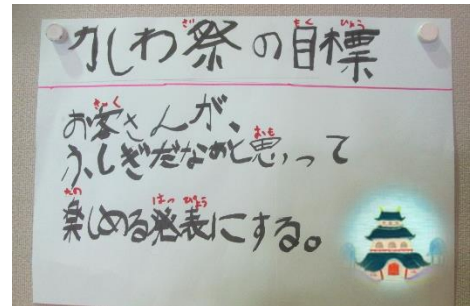 かしわ祭の目標
お客さんが、
ふしぎだなぁと思って
楽しめる発表にする。